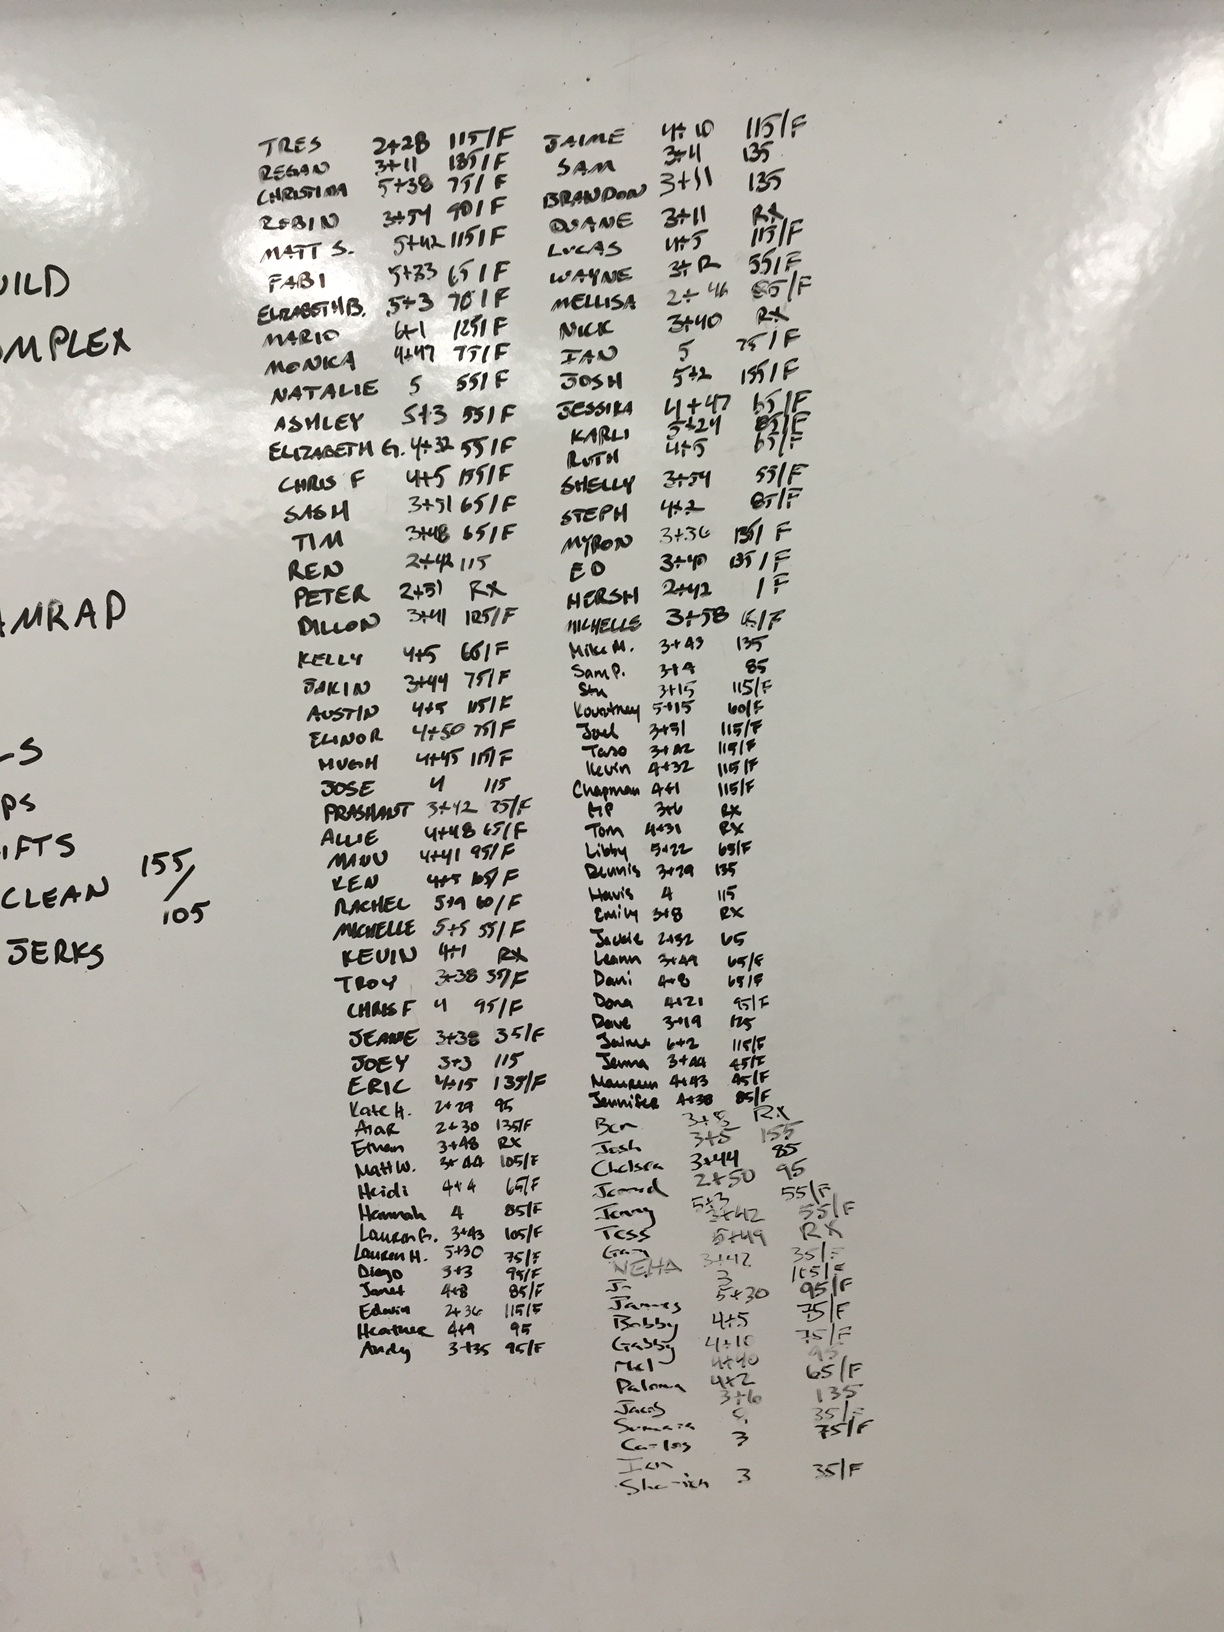 UILD
OMPLEX
AMRAP
LS
PS
IFTS
CLEAN 155/105
JERKS
TRES 2+28 115/F
REGAN 3+11 135/F
CHRISTINA 5+38 75/F
ROBIN 3+54 90/F
MATT S. 5+42 115/F
FABI 5+33 65/F
ELIZABETH B. 5+3 70/F
MARIO 6+1 125/F
MONIKA 4+47 75/F
NATALIE 5 55/F
ASHLEY 5+3 55/F
ELIZABETH G. 4+32 55/F
CHRIS F 4+5 155/F
SASH 3+51 65/F
TIM 3+48 65/F
REN 2+42 115
PETER 2+51 RX
DILLON 3+41 125/F
KELLY 4+5 65/F
JAKIN 3+44 75/F
AUSTIN 4+5 115/F
ELINOR 4+50 75/F
HUGH 4+45 115/F
JOSE 4 115
PRASHANT 3+42 75/F
ALLIE 4+48 65/F
MANU 4+41 95/F
KEN 4+5 105/F
RACHEL 5+9 60/F
MICHELLE 5+5 55/F
KEVIN 4+1 RX
TROY 3+38 35/F
CHRIS F 4 95/F
JEANE 3+38 35/F
JOEY 3+3 115
ERIC 4+15 135/F
Kate H. 2+29 95
Alar 2+30 135/F
Ethan 3+48 RX
Matt W. 3+44 105/F
Heidi 4+4 65/F
Hannah 4 85/F
Lauren G. 3+43 105/F
Lauren H. 5+30 75/F
Diego 3+3 95/F
Janet 4+8 85/F
Edwin 2+36 115/F
Heather 4+9 95
Andy 3+35 95/F
JAIME 4+10 115/F
SAM 3+4 135
BRANDON 3+51 135
DUANE 3+11 RX
LUCAS 4+5 115/F
WAYNE 3+12 55/F
MELLISA 2+46 85/F
NICK 3+40 RX
IAN 5 75/F
JOSH 5+2 155/F
JESSIKA 4+47 65/F
KARLI 5+29 85/F
RUTH 4+5 65/F
SHELLY 3+54 55/F
STEPH 4+2 85/F
MYRON 3+36 135/F
ED 3+40 135/F
HERSH 2+42 /F
MICHELLE 3+58 /F
Mike M. 3+43 135
Sam P. 3+9 85
Stu 3+15 115/F
Kourtney 5+15 60/F
Joel 3+51 115/F
Taso 3+42 115/F
Kevin 4+32 115/F
Chapman 4+1 115/F
MP 3+6 RX
Tom 4+31 RX
Libby 5+22 65/F
Dennis 3+29 135
Havis 4 115
Emily 3+8 RX
Jackie 2+52 65
Leann 3+49 65/F
Dani 4+8 65/F
Dana 4+21 95/F
Dave 3+19 125
Jaime 6+2 115/F
Jenna 3+44 45/F
Maureen 4+43 45/F
Jennifer 4+38 85/F
Ben 3+8 RX
Josh 3+5 155
Chelsea 3+44 85
Jerrod 2+50 95
Jenny 5+3 55/F
Tess 3+42 55/F
Gary 5+49 RX
NEHA 3+42 35/F
3 105/F
James 5+30 95/F
Bobby 4+5 75/F
Gabby 4+10 75/F
Mel 4+40 95
Paloma 4+2 65/F
Jacob 3+6 135
35/F
Carlos 3 75/F
Ian
3 35/F